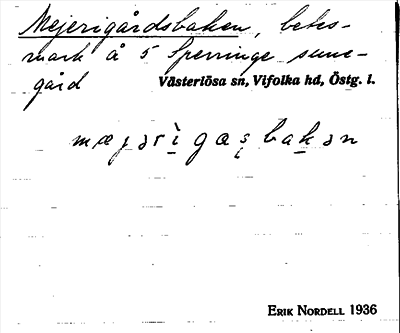 Mejerigårdsbaken, betes-
mark å 5 Sperringe sune-
gård
Västerlösa sn, Vifolka hd, Östg. l.
mæjərìgaṣbakən
ERIK NORDELL 1936